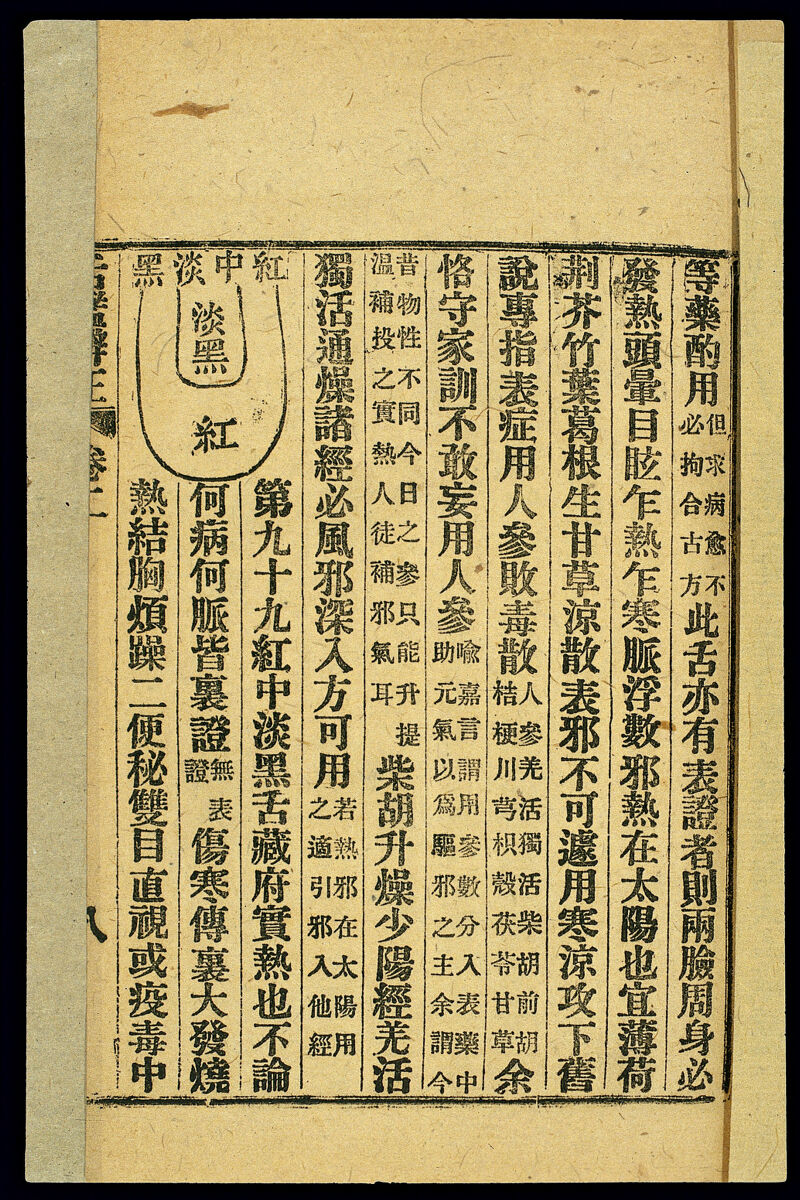 等藥酌用但求病愈不必拘合古方此舌亦有表證者則兩臉周身必
發熱頭暈目眩乍熱乍寒脈浮數邪熱在太陽也宜薄荷
荆芥竹葉葛根生甘草涼散表邪不可遽用寒涼攻下舊
說專指表症用人參敗毒散人參羌活獨活柴胡前胡桔梗川芎枳殼茯苓甘草余
恪守家訓不敢妄用人參喻嘉言謂用參數分入表藥中助元氣以爲驅邪之主余謂今
昔物性不同今日之參只能升提溫補投之實熱人徒補邪氣耳柴胡升燥少陽經羌活
獨活通燥諸經必風邪深入方可用若熱邪在太陽用之適引邪入他經
紅中淡黑
淡黑
紅
第九十九紅中淡黑舌藏府實熱也不論
何病何脈皆裏證無表證傷寒傳裏大發燒
熱結胸煩躁二便秘雙目直視或疫毒中
卷二
八